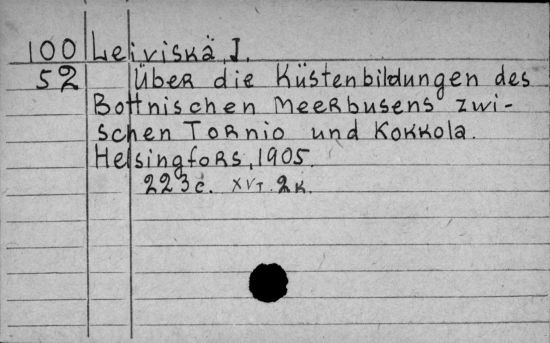 100 Leiviskä, I.
52 Über die Küstenbildungen des
Bottnischen Meerbusens zwi-
schen Tornio und Kokkola.
Helsingfors, 1905.
223 с. XVI. 2 к.